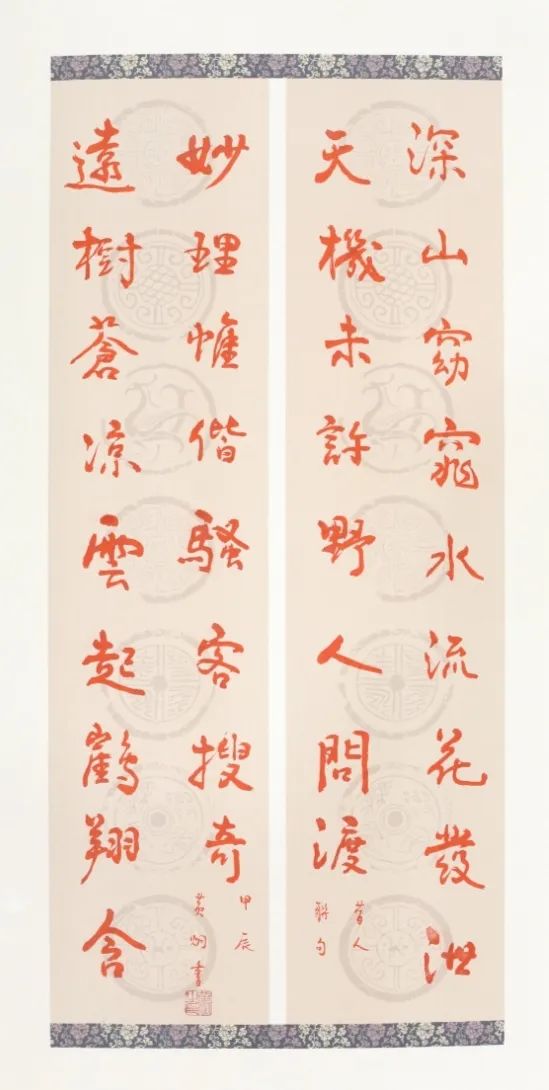 深山窈窕水流花發泄
天機未許野人問渡
昔人
聯句
遠樹蒼凉雲起鶴翔含
妙理惟偕騷客搜奇
甲辰
黄書